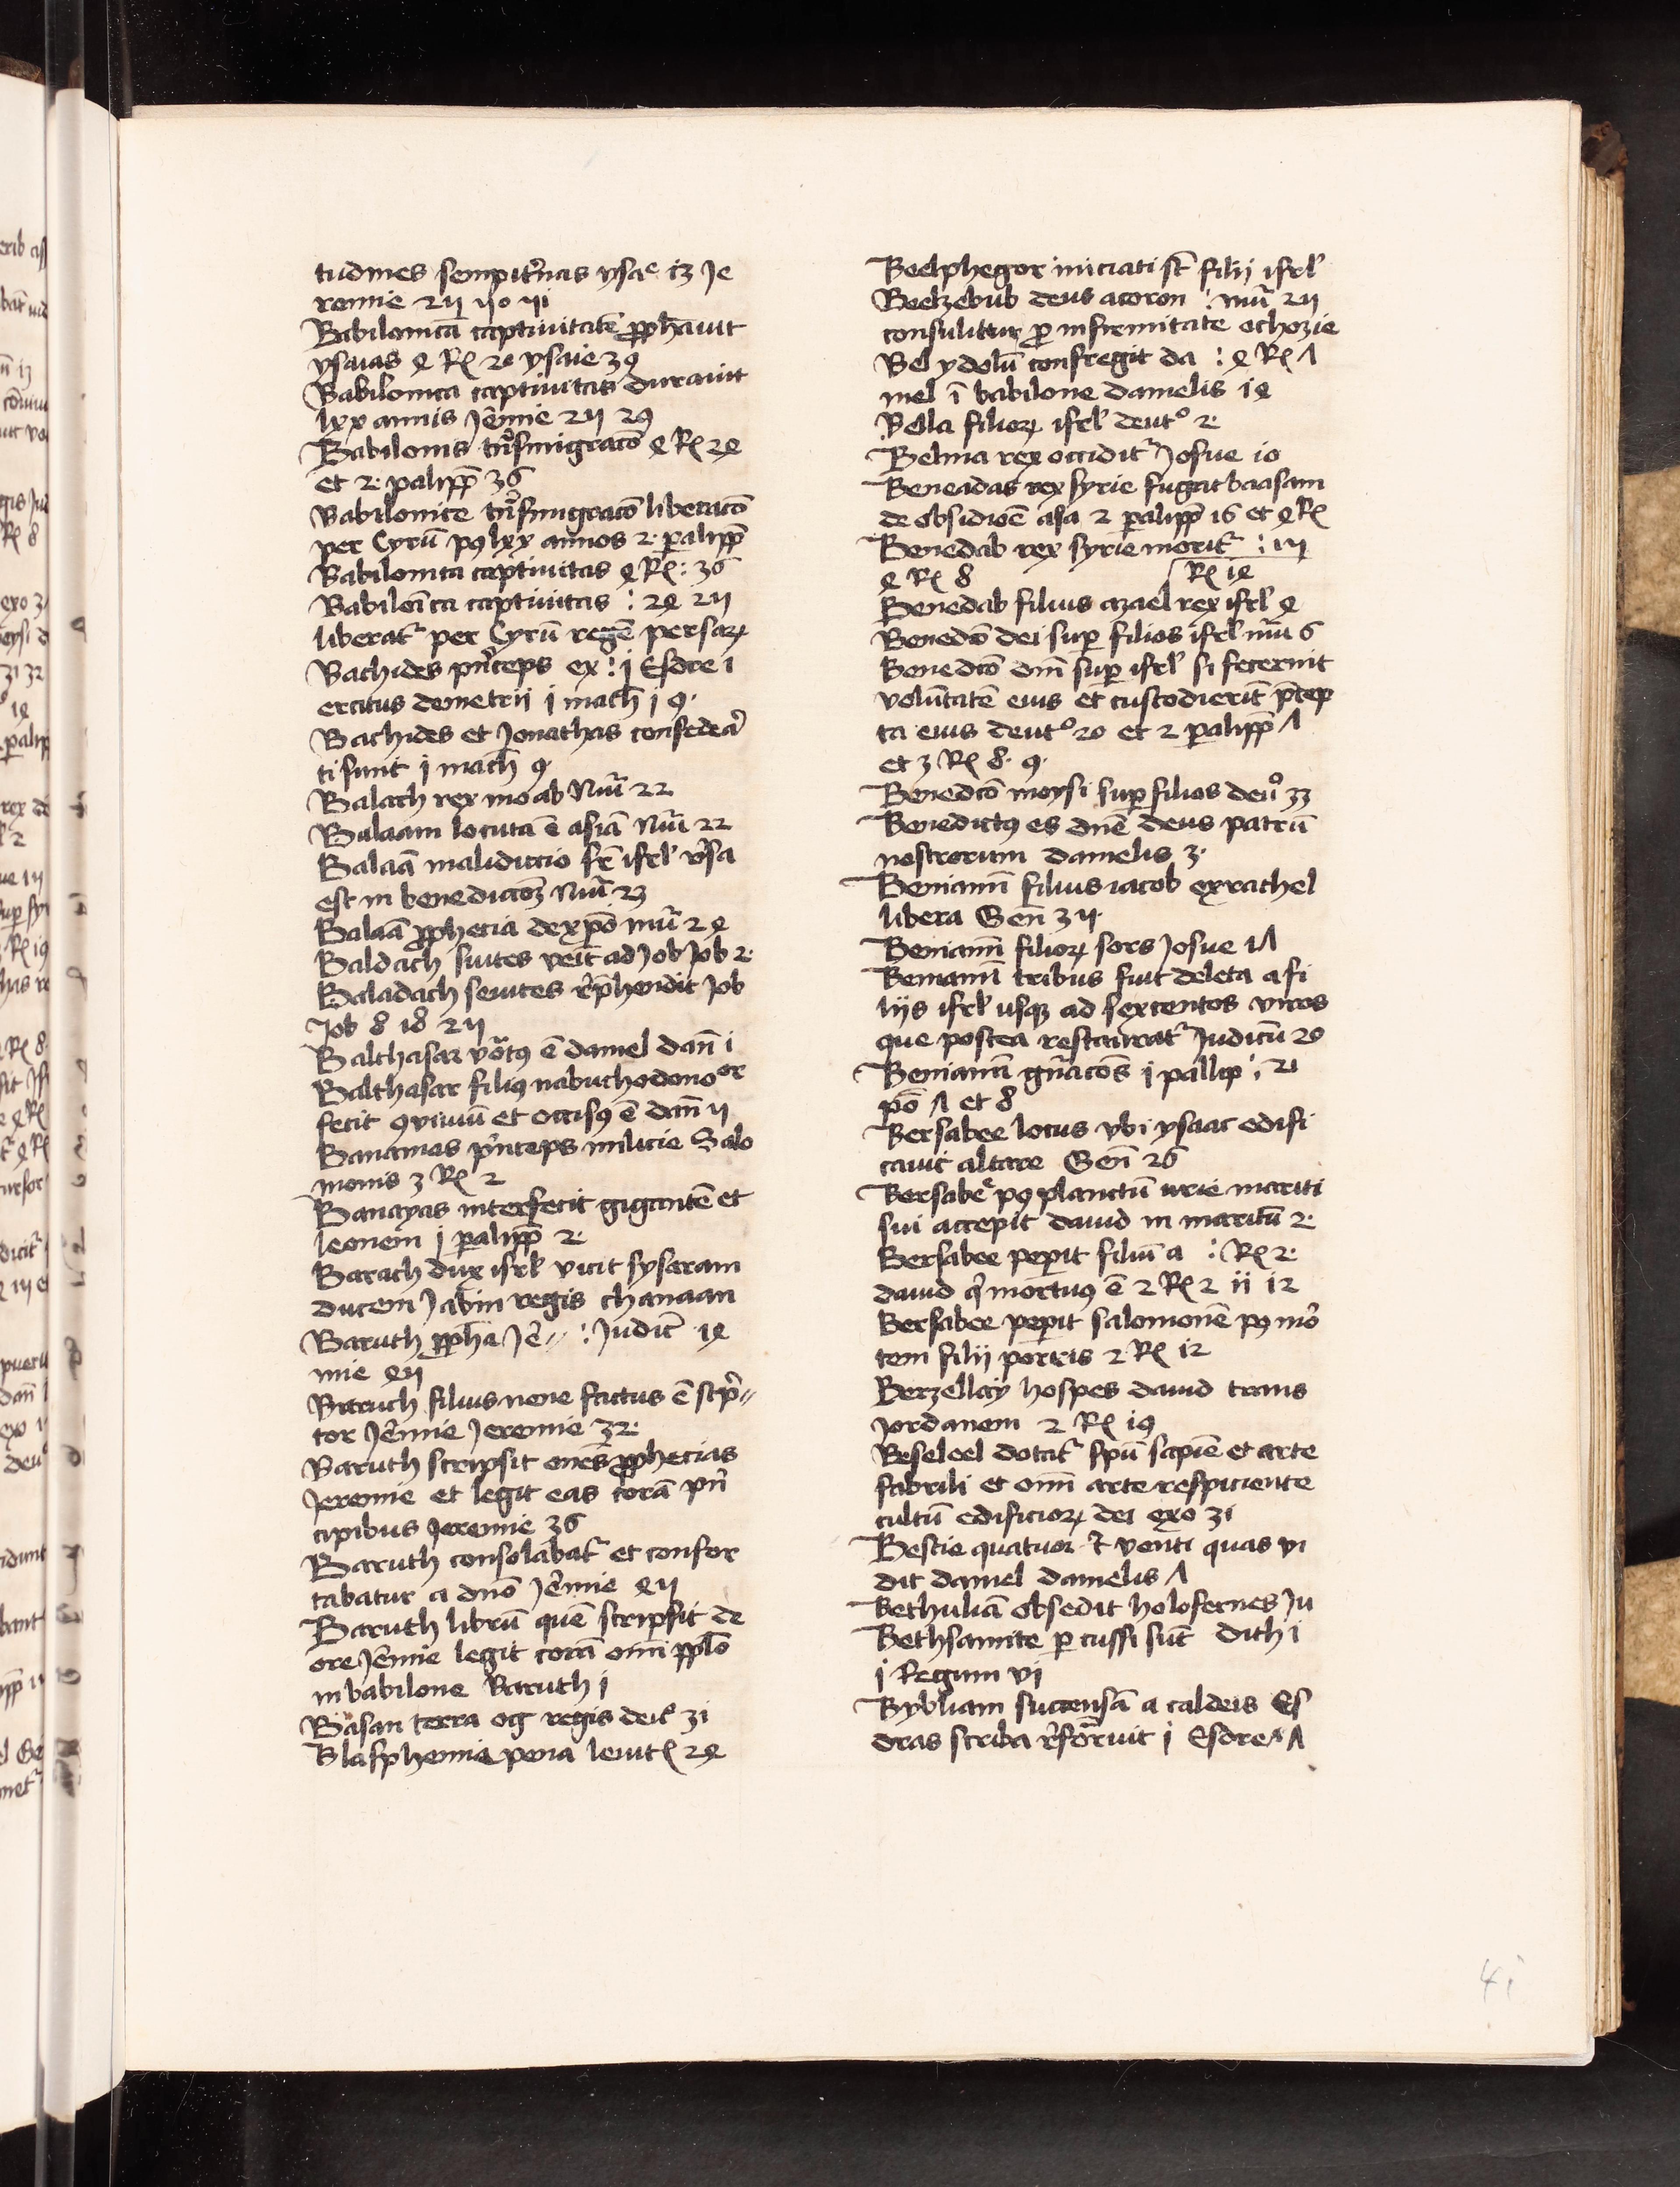 tudines sempit̄nas ysaᵉ 13 Je
remie 25 50 51
Babilonicā captiuitatē ꝓphauit
ysaias 4 Rꝭ 20 ysaie 39
Babilonica captiuitas durauit
lxx annis Jēmie 25 29
Babilonis tn̄smigracō 4 Rꝭ 24
et 2· palipp̄ 36
Babilonice tn̄smigracō liberacō
per Cyrū pꝯ lxx annos 2· ꝑalipp̄
Babilonica captiuitas 4 Rꝭ : 36
Babiloīca captiuitas : 24 25
liberat᷑ per Cyrū regē persaꝝ
Bachides pn̄ceps ex : j Esdre i
ercitus demetrii j mach̄ j 9·
Bachides et Jonathas confedea᷑
ti sunt j mach̄ 9
Balach rex moab Nūi 22
Balaam locuta ē asiā Nūi 22
Balaā malidiccio fr̄ isrl̄ v̄sa
est in benediccoꝫ Nūi 23
Balaā ꝓphecia de xp̄o nūi 24
Baldach suites veīt ad Job Job 2·
Baladach seuites r̄p̄hendit Job
Job 8 18 25
Balthasar vōtꝯ ē daniel dan̄ i
Balthasar filiꝯ nabuchodonoᵒʳ
fecit ꝯuiuiū et occisꝯ ē dan̄ 5
Banaias pn̄ceps milicie Salo
monis 3 Rꝭ 2
Banayas interfecit gigantē et
leonem j ꝑalipp̄ 2·
Barach dux isrl̄ vicit sysaram
ducem Jabin regis chanaan
Baruch ꝓph̄a Jē⸗ : Judic̄ 14
mie 45
Baruch filius nerie factus ē scp̄⸗
tor Jēmie Jeremie 32·
Baruth scripsit om̄es ꝓphecias
Jeremie et legit eas corā pn̄
cipibus Jeremie 36
Baruth consolabat᷑ et confor
tabatur a dn̄o Jēmie 45
Baruth librū quē scripsit de
ore Jēmie legit corā om̄i pplō
in babilone Baruth j
Basan terra og regis deut̄ 31
Blasphemie pena leuitꝭ 24
Beelphegor iniciati st̄ filij isrl̄
Beelzebub deus acoron : nūi 25
consulittur ꝓ infirmitate ochozie
Bel ydolū confregit da : 4 Rꝭ 1
niel ī babilone danielis 14
Bella filioꝝ isrl̄ deutᵒ 2·
Belina rex occidit᷑ Josue 10
Beneadas rex syrie fugat baasam
de obsidiōe asa 2 ꝑalipp̄ 16 et 4 Rꝭ
Benedab rex syrie morit᷑ : 15
4 Rꝭ 8 Rꝭ 14
Benedab filius azael rex isrl̄ 4
Benedcō dei suꝑ filios isrl̄ nūi 6
Benedcō dn̄i suꝑ isrl̄ si fecerint
volūtatē eius et custodierīt p̄cep
ta eius deutᵒ 20 et 2 ꝑalipp̄ 7
et 3 Rꝭ 8· 9·
Benedcō moysi suꝑ filios deuᵒ 33
Benedictꝯ es dn̄e deus patrū
nostrorum danielis 3·
Beniamī filius iacob ex rachel
libera Gen̄ 35·
Beniamī filioꝝ sors Josue 17
Beniamī tribus fuit deleta a fi
lijs isrl̄ usqꝫ ad sexcentos viros
que postea restaurat᷑ Judicū 20
Beniamī gn̄acōs j pallip : 21
pō 7 et 8
Bersabee locus vbi ysaac edifi
cauit altare Gen̄ 26
Bersabeᵉ pꝯ planctū urie mariti
sui accepit dauid in maritū 2·
Bersabee peperit filiū a : Rꝭ 2·
dauid q̄ mortuꝯ ē 2 Rꝭ 2 ii 12
Bersabee peperit salomonē pꝯ mō
tem filii prioris 2 Rꝭ 12
Berzellay hospes dauid trans
Jordanem 2 Rꝭ 19
Beseleel dotat᷑ spū sapiē et arte
fabrili et om̄i arte respiciente
cultū edificioꝝ dei exo 31
Bestie quatuor ⁊ venti quas vi
dit daniel danielis 7
Bethuliā obsedit holofernes Ju
Bethsamite ꝑ cussi sūt dith i
j Regum vj
Bybliam succensā a caldeis Es
dras scriba r̄formuit j Esdre 7
41